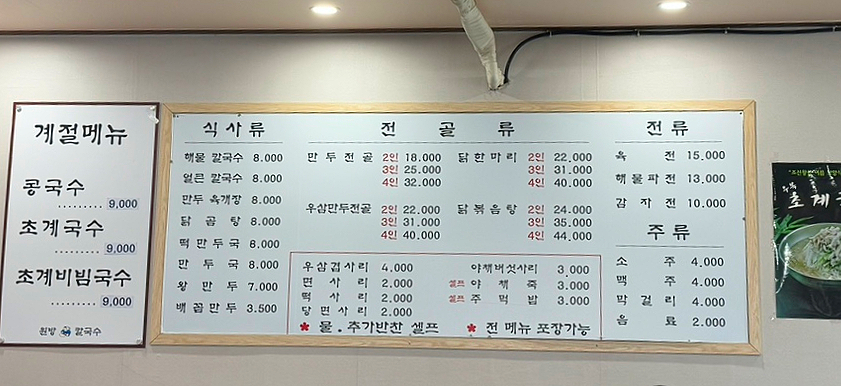 계절메뉴
콩국수
......... 9,000
초계국수
......... 9,000
초계비빔국수
......... 9,000
원방 칼국수
식사류
해물 칼국수 8.000
얼큰 칼국수 8.000
만두 육개장 8.000
닭 곰 탕 8.000
떡 만 두 국 8.000
만 두 국 8.000
왕 만 두 7.000
배 꼽 만 두 3.500
전 골 류
만 두 전 골 2인 18.000
3인 25.000
4인 32.000
닭 한 마 리 2인 22.000
3인 31.000
4인 40.000
우삼만두전골 2인 22.000
3인 31.000
4인 40.000
닭 볶 음 탕 2인 24.000
3인 35.000
4인 44.000
우삼겹사리 4,000
면 사 리 2.000
떡 사 리 2.000
당 면 사 리 2.000
야채버섯사리 3,000
셀프 야 채 죽 3.000
셀프 주 먹 밥 3.000
물 . 추가반찬 셀프
전 메뉴 포장가능
전 류
육 전 15.000
해 물 파 전 13.000
감 자 전 10.000
주 류
소 주 4.000
맥 주 4.000
막 걸 리 4.000
음 료 2.000
초계